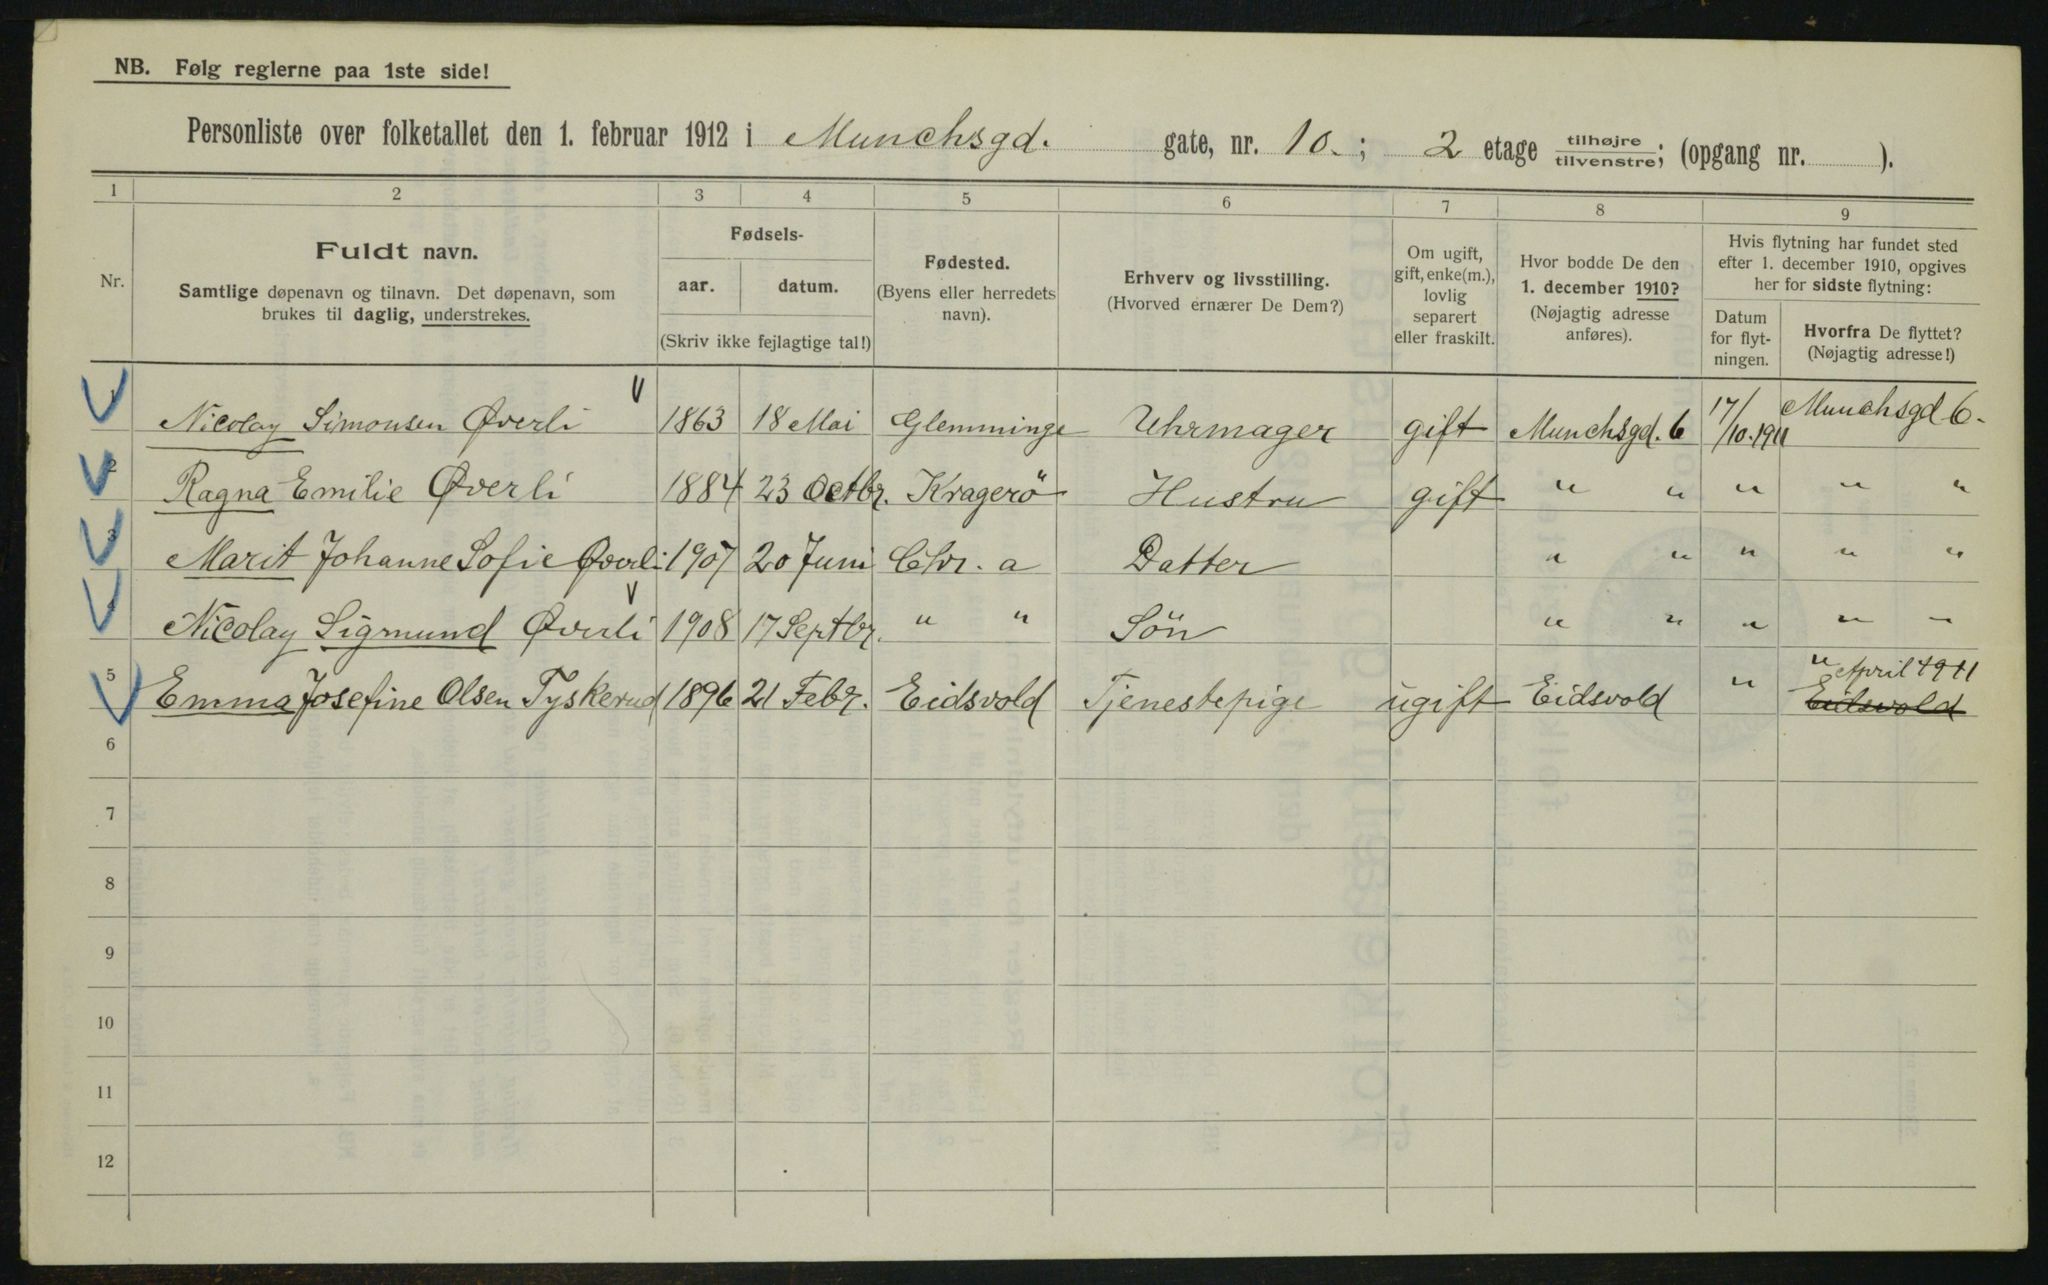 NB. Følg reglerne paa 1ste side!
Personliste over folketallet den 1. februar 1912 i Munchsgd. gate, nr. 10.; 2 etage tilhøjre/tilvenstre; (opgang nr. ).
1 2 3 4 5 6 7 8 9
Nr.
Fuldt navn.
Samtlige døpenavn og tilnavn. Det døpenavn, som
brukes til daglig, understrekes.
Fødsels-
aar. datum.
(Skriv ikke fejlagtige tal!)
Fødested.
(Byens eller herredets
navn).
Erhverv og livsstilling.
(Hvorved ernærer De Dem?)
Om ugift,
gift, enke(m.),
lovlig
separert
eller fraskilt.
Hvor bodde De den
1. december 1910?
(Nøjagtig adresse
anføres).
Hvis flytning har fundet sted
efter 1. december 1910, opgives
her for sidste flytning:
Datum
for flyt-
ningen.
Hvorfra De flyttet?
(Nøjagtig adresse!)
1 Nicolay Simonsen Øverli 1863 18 Mai Glemminge Uhrmager gift Munchsgd. 6 17/10.1911 Munchsgd 6.
2 Ragna Emilie Øverli 1884 23 Octbr. Kragerö Hustru gift " " " " "
3 Marit Johanne Sofie Øverli 1907 20 Juni Chr. a Datter " " " " "
4 Nicolay Sigmund Øverli 1908 17 Septbr. " " Sön " " " " "
5 Emma Josefine Olsen Tyskerud 1896 21 Febr. Eidsvold Tjenestepige ugift Eidsvold " " April 1911
Eidsvold
6
7
8
9
10
11
12